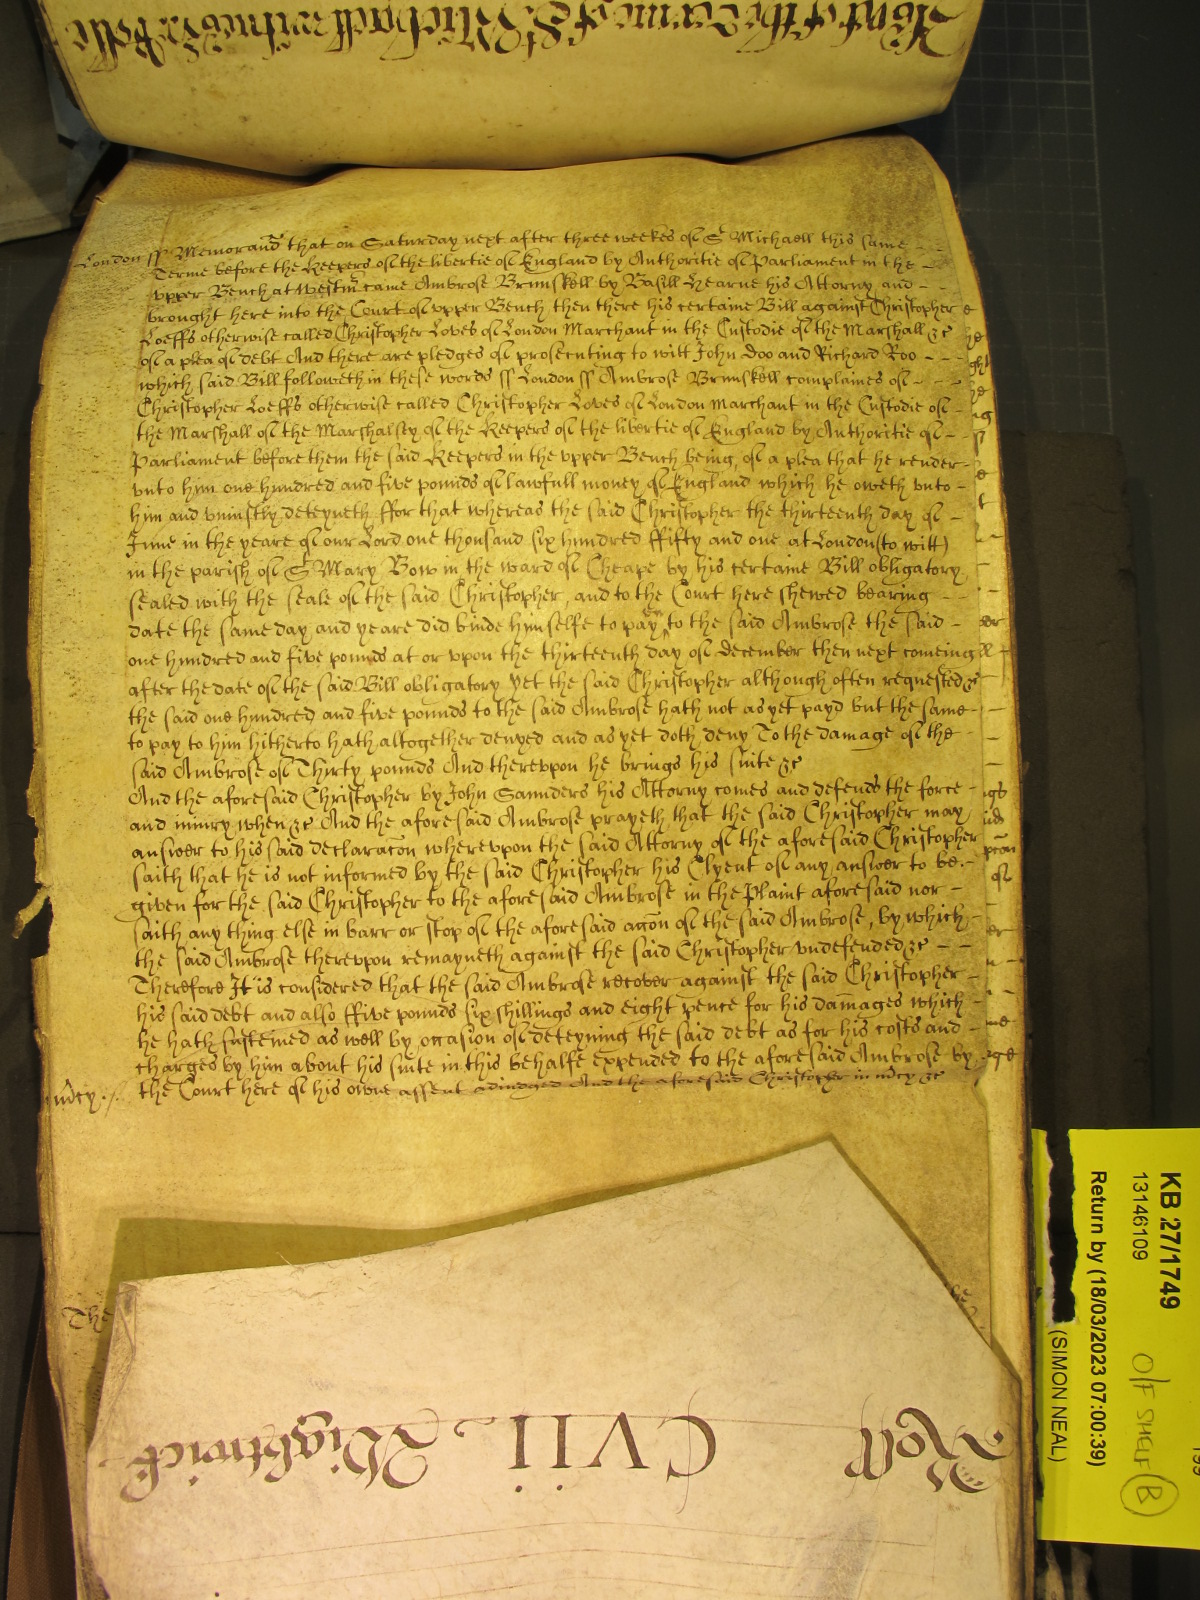 Yet of the Terme of St Michaell witnes H: Rolle
London ss Memorand that on Saturday next after three weekes of St Michaell this same
Terme before the Keepers of the libertie of England by Authoritie of Parliament in the
vpper Bench at Westm came Ambrose Brunskell by Basill Hearne his Attorny and
brought here into the Court of vpper Bench then there his certaine Bill against Christopher
Loeffs otherwise called Christopher Loves of London Marchant in the Custodie of the Marshall &c
of a plea of debt And there are pledges of prosecuting to witt John Doo and Richard Roo
which said Bill followeth in these words ss London ss Ambrose Brunskell complaines of
Christopher Loeffs otherwise called Christopher Loves of London Marchant in the Custodie of
the Marshall of the Marshalsey of the Keepers of the libertie of England by Authoritie of
Parliament before them the said Keepers in the vpper Bench being, of a plea that he render
vnto him one hundred and five pounds of lawfull money of England which he oweth vnto
him and vniustly deteyneth ffor that whereas the said Christopher the thirteenth day of
June in the yeare of our Lord one thousand six hundred ffifty and one at London (to witt)
in the parish of St Mary Bow in the ward of Cheape by his certaine Bill obligatory
sealed with the seale of the said Christopher, and to the Court here shewed bearing
date the same day and yeare did binde himselfe to pay to the said Ambrose the said
one hundred and five pounds at or vpon the thirteenth day of december then next comeing
after the date of the said Bill obligatory Yet the said Christopher although often requested &c
the said one hundred and five pounds to the said Ambrose hath not as yet payd but the same
to pay to him hitherto hath altogether denyed and as yet doth deny To the damage of the
said Ambrose of Thirty pounds And therevpon he brings his suite &c
And the aforesaid Christopher by John Saunders his Attorny comes and defends the force
and iniury when &c And the aforesaid Ambrose prayeth that the said Christopher may
answer to his said declaracon wherevpon the said Attorny of the aforesaid Christopher
saith that he is not informed by the said Christopher his Clyent of any answer to be
given for the said Christopher to the aforesaid Ambrose in the Plaint aforesaid nor
saith any thing else in barr or stop of the aforesaid acon of the said Ambrose, by which
the said Ambrose therevpon remayneth against the said Christopher vndefended &c
Therefore It is considered that the said Ambrose recover against the said Christopher
his said debt and also ffive pounds six shillings and eight pence for his damages which
he hath susteined as well by occasion of deteyning the said debt as for his costs and
charges by him about his suite in this behalfe expended to the aforesaid Ambrose by
mcy the Court here of his owne assent adiudged And the aforesaid Christopher in mcy &c
The
Roll CVII. Wightwick
KB 27/1749
13146109
Return by (18/03/2023 07:00:39)
(SIMON NEAL)
O/F SHELF B